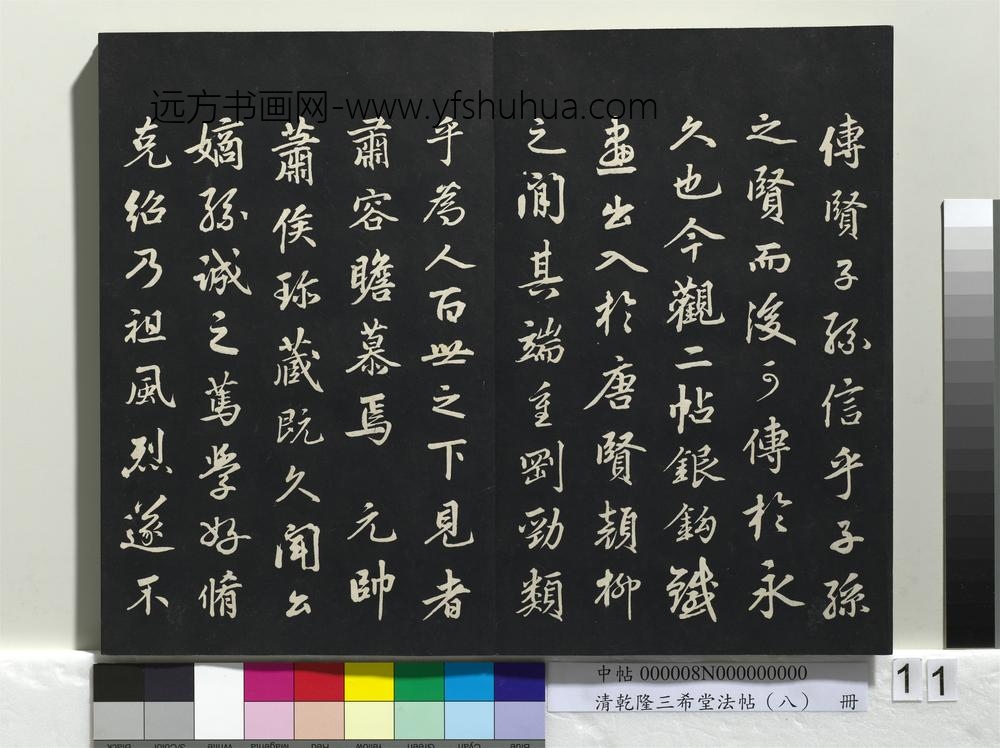 远方书画网-www.yfshuhua.com
傳賢子孫信乎子孫
之賢而後可傳於永
久也今觀二帖銀鈎鐵
畫出入於唐賢顔柳
之間其端重剛勁類
乎為人百世之下見者
肅容瞻慕焉 元帥
蕭侯珎藏既久聞公
嫡孫誠之篤學好脩
克紹乃祖風烈遂不
中帖 000008N000000000
清乾隆三希堂法帖（八） 冊
11
Black
3/Color
White
Magenta
Red
Yellow
Green
Cyan
Blue